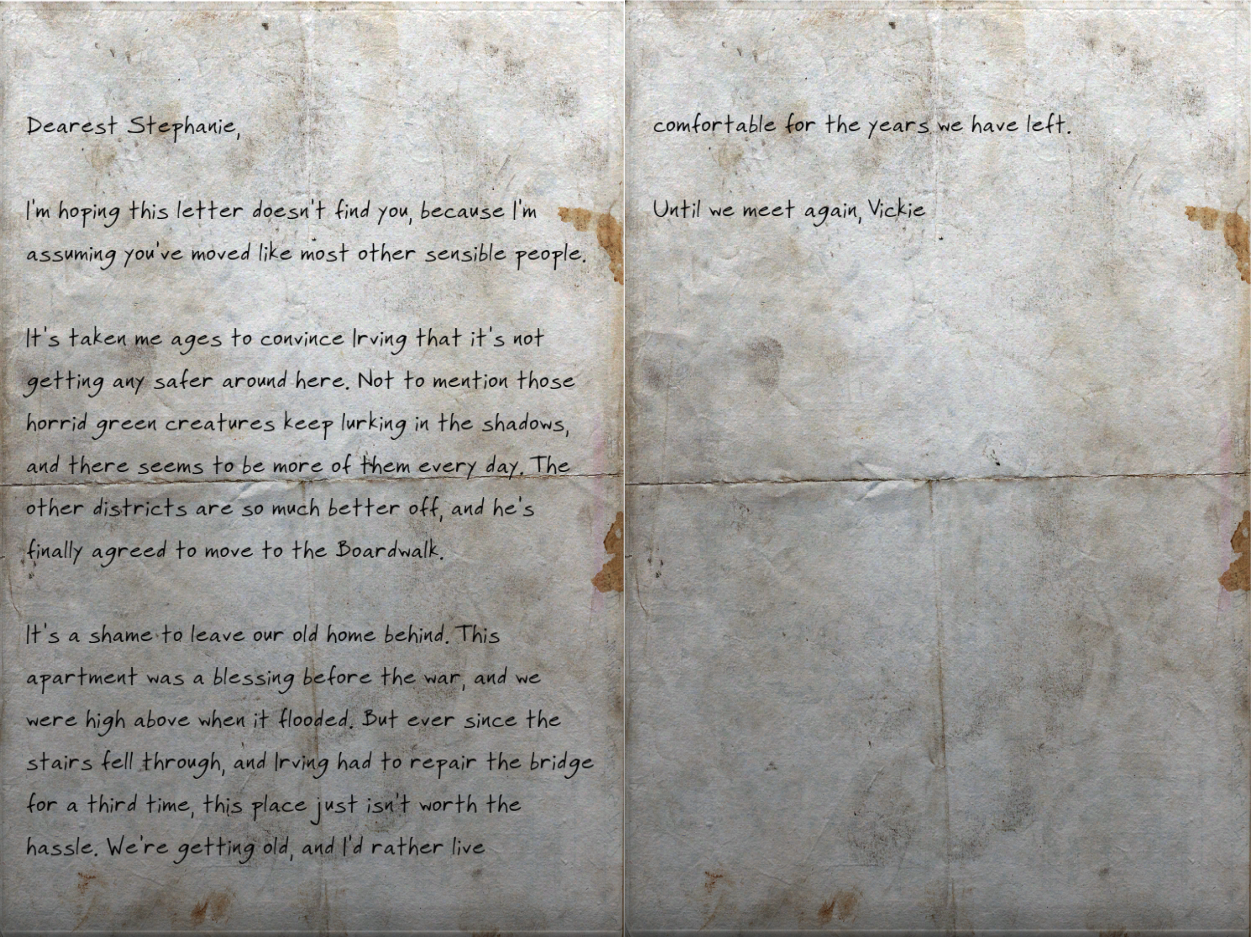 Dearest Stephanie,
I'm hoping this letter doesn't find you, because I'm
assuming you've moved like most other sensible people.
It's taken me ages to convince Irving that it's not
getting any safer around here. Not to mention those
horrid green creatures keep lurking in the shadows,
and there seems to be more of them every day. The
other districts are so much better off, and he's
finally agreed to move to the Boardwalk.
It's a shame to leave our old home behind. This
apartment was a blessing before the war, and we
were high above when it flooded. But ever since the
stairs fell through, and Irving had to repair the bridge
for a third time, this place just isn't worth the
hassle. We're getting old, and I'd rather live
comfortable for the years we have left.
Until we meet again, Vickie